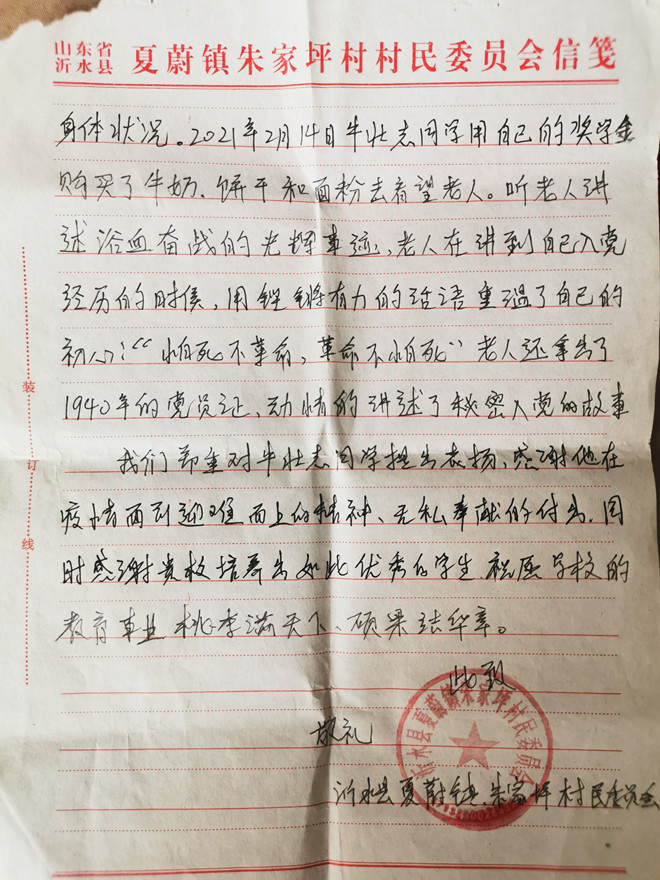 山东省
沂水县
夏蔚镇朱家坪村村民委员会信笺
身体状况。2021年2月14日牛壮志同学用自己的奖学金
购买了牛奶、饼干和面粉去看望老人。听老人讲
述浴血奋战的光辉事迹、老人在讲到自己入党
经历的时候，用铿锵有力的话语重温了自己的
初心：“怕死不革命，革命不怕死”老人还拿出了
1940年的党员证、动情的讲述了秘密入党的故事
我们郑重对牛壮志同学提出表扬，感谢他在
疫情面到迎难而上的精神、无私奉献的付出.同
时感谢贵校培养出如此优秀的学生 祝愿学校的
教育事业 桃李满天下、硕果结华章。
此致
敬礼
沂水县夏蔚镇朱家坪村民委员会
沂水县夏蔚镇朱家坪村民委员会
装
订
线